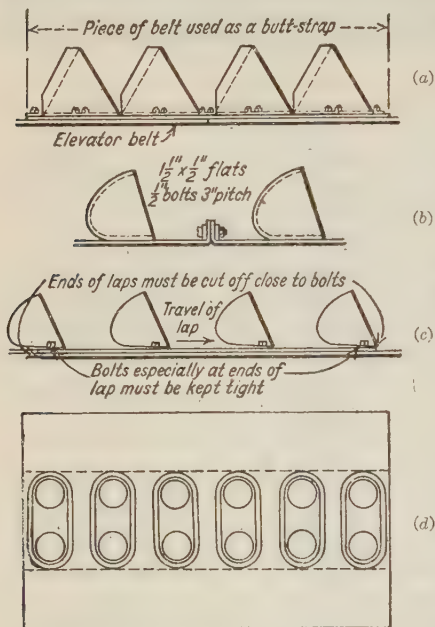 Piece of belt used as a butt-strap
(a)
Elevator belt
1 1/2" x 1/2" flats
1/2" bolts 3" pitch
(b)
Ends of laps must be cut off close to bolts
Travel of
lap
(c)
Bolts especially at ends of
lap must be kept tight
(d)